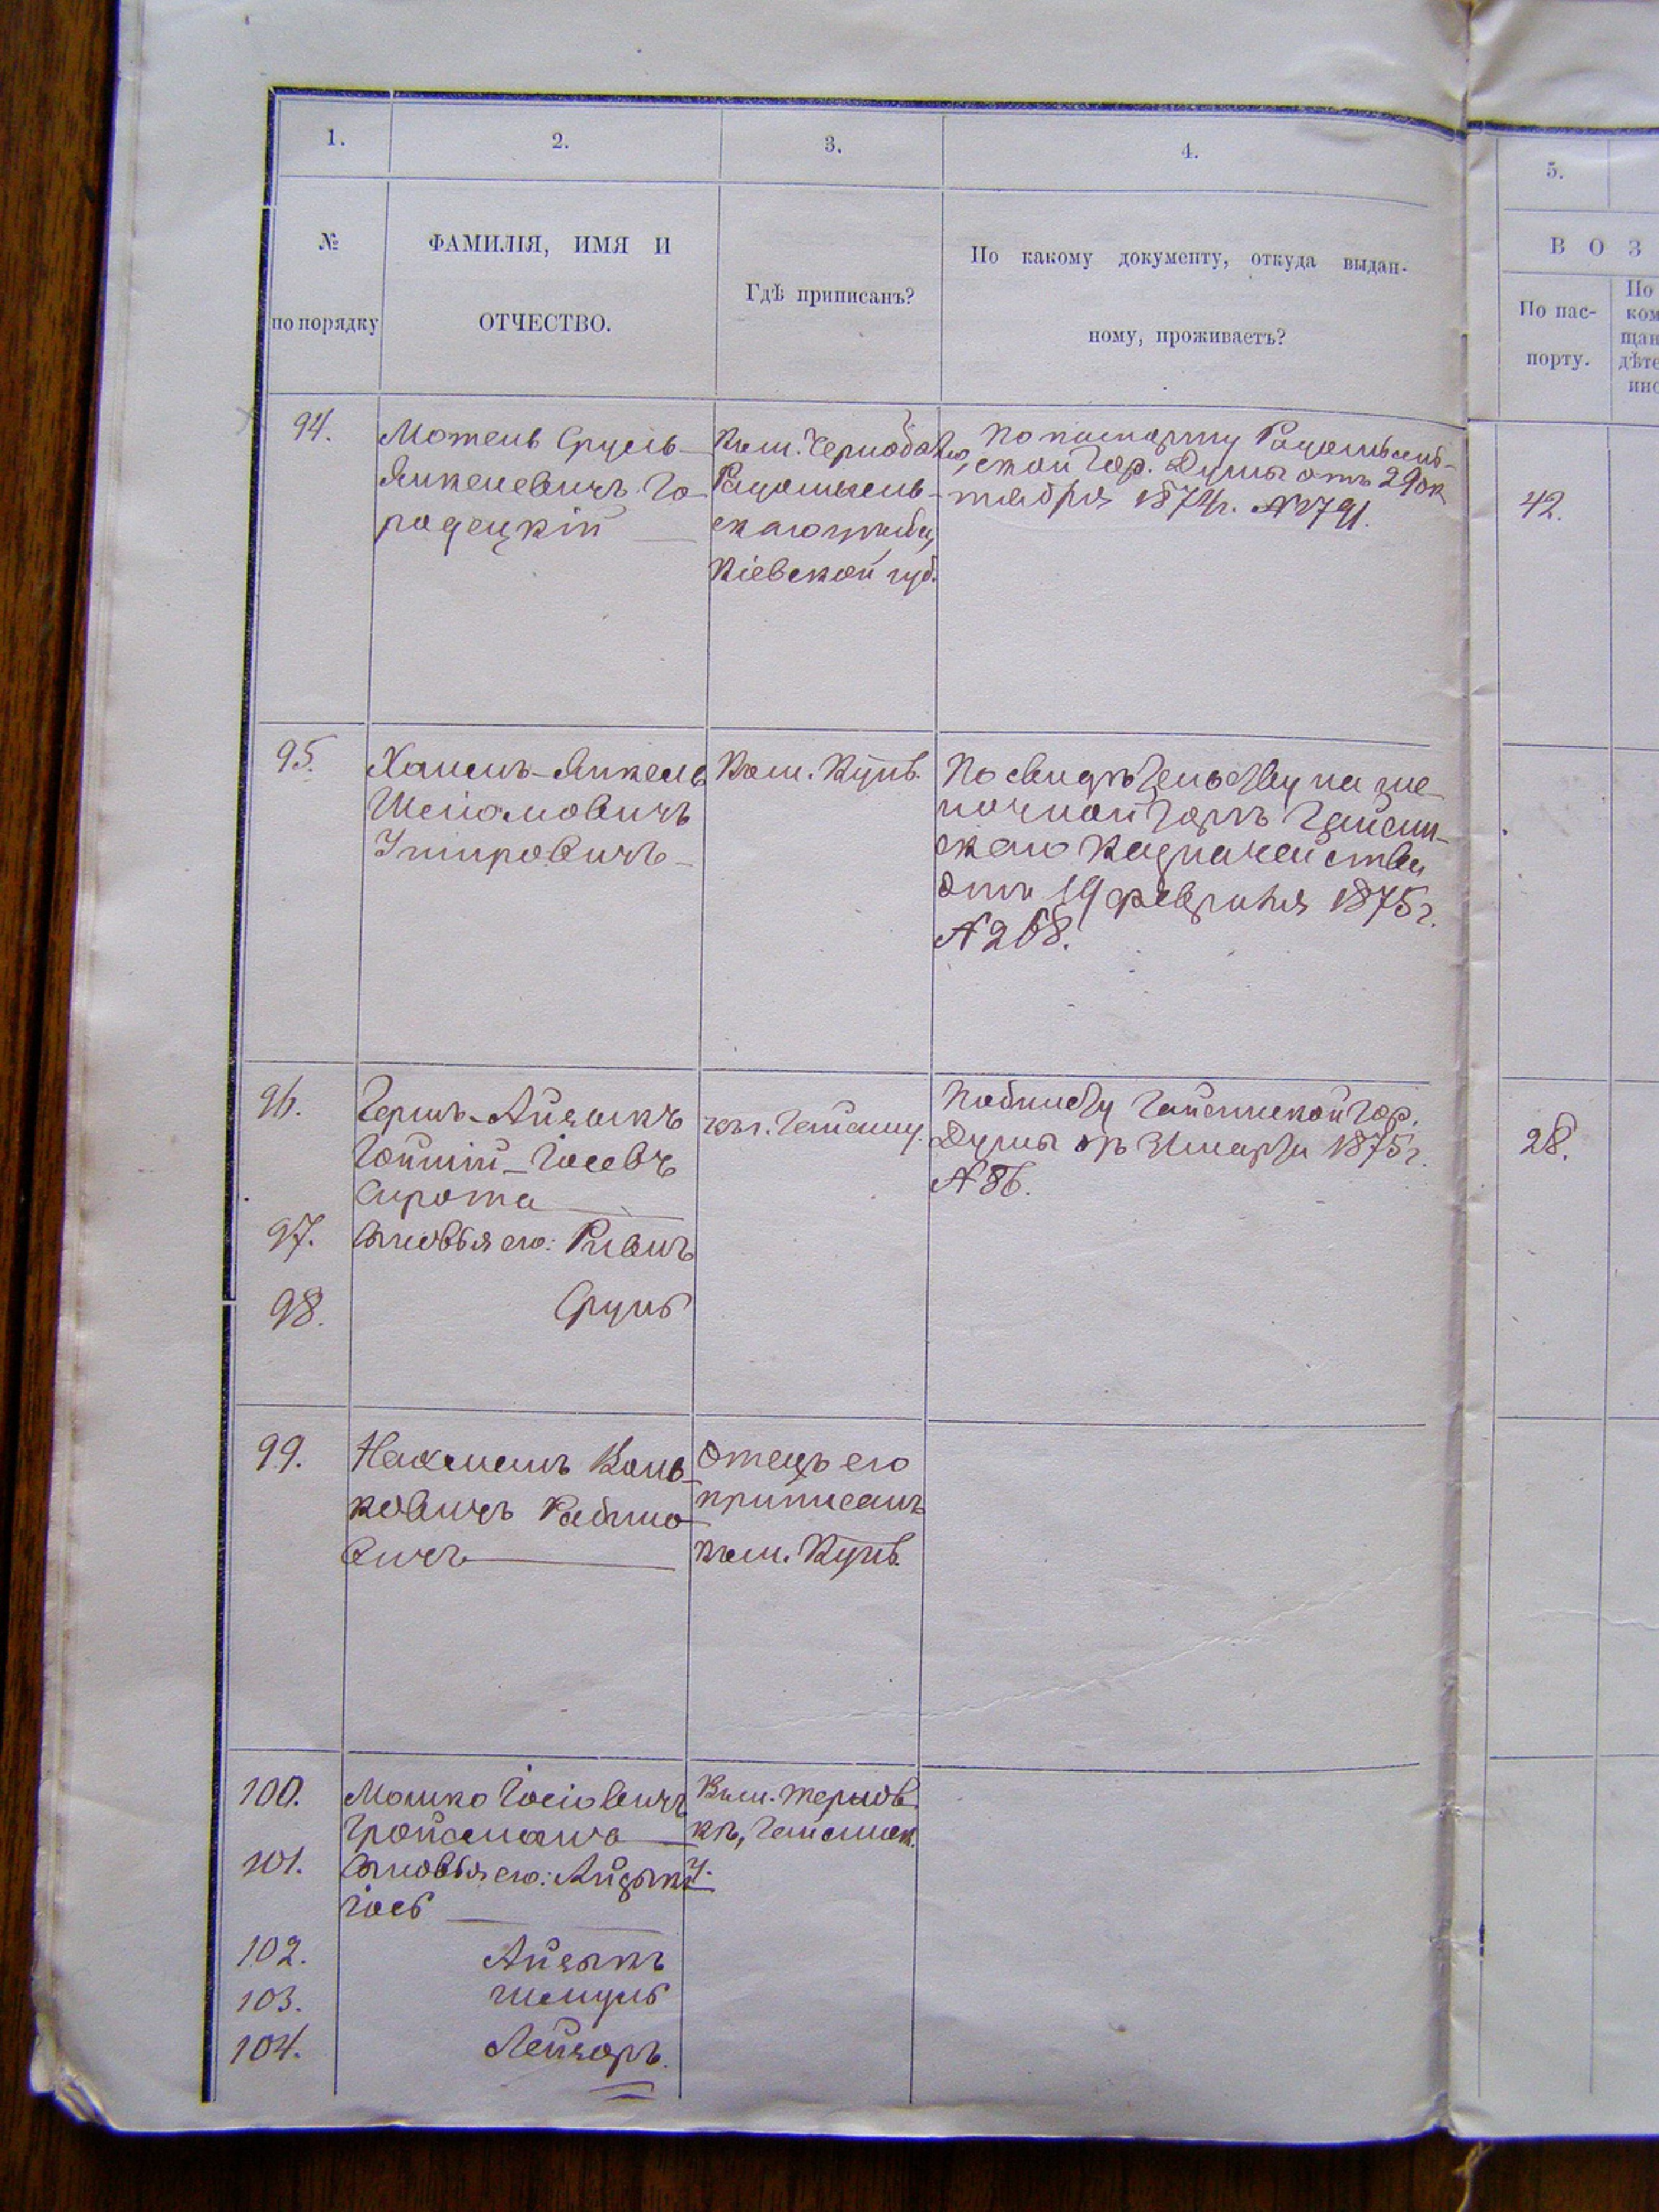 1.
2.
3.
4.
5.
№
по порядку
ФАМИЛІЯ, ИМЯ И
ОТЧЕСТВО.
Гдѣ приписанъ?
По какому документу, откуда выдан-
ному, проживаетъ?
В О З
По пас-
порту.
По
ком
щан
дѣте
инс
94.
Мотель Сруль-
Янкелевичъ Го-
родецкій
Къ м. Чернобылю,
Радомысль-
скаго уѣзда,
Кіевской губ.
По паспорту Радомысль-
ской Гор. Думы отъ 29 ок
тября 1874 г. № 791.
42.
95.
Хаимъ-Янкель
Шеломовичъ
Къ м. Кунѣ.
По свидѣтельству на ме-
лочной торгъ Гайсин-
скаго Казначейства
отъ 19 февраля 1875 г.
№ 268.
96.
Гершъ-Айзыкъ
Іосевъ
Сирота
гор. Гайсину.
По билету Гайсинской Гор.
Думы отъ 31 марта 1875 г.
№ 86.
28.
97.
Сыновья его: Рывинъ
98.
Сруль
99.
Нахманъ Воль-
ковичъ Рабино-
вичъ
Отецъ его
приписанъ
къ м. Кунѣ.
100.
Мошко Іосіовичъ
Гройсманъ
Къ м. Тернов-
кѣ, Гайсинск.
у.
101.
Сыновья его: Айзыкъ
Іось
102.
Айзыкъ
103.
Шмуль
104.
Лейзоръ.